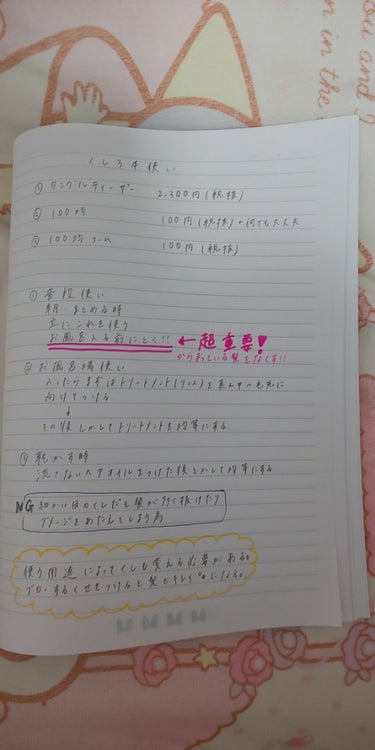 くし3本使い
① タングルティーザー 2,300円(税抜)
② 100均 100円(税抜)←何でも大丈夫
③ 100均コーム 100円(税抜)
① 普段使い
朝・まとめる時
主にこれを使う
お風呂入る前にとく!! ← 超重要!
からまっている髪をなくす!!
② お風呂場使い
入ったらまずはトリートメント(リンス)を真ん中〜毛先に
向けてつける
↓
その後とかしてトリートメントを均等にする
③ 乾かす時
流さないヘアオイルをつけた後とかして均等にする
NG 細かい目のくしだと髪が多く抜けたり
ダメージをあたえてしまう為
使う用途によってくしも変える必要がある。
ブローするくせをつけると髪もキレイになる。
you and
n in the